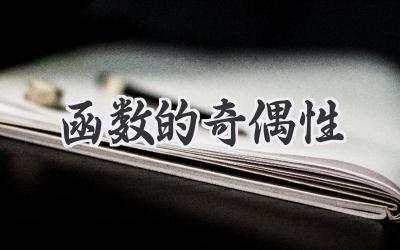 函数的奇偶性